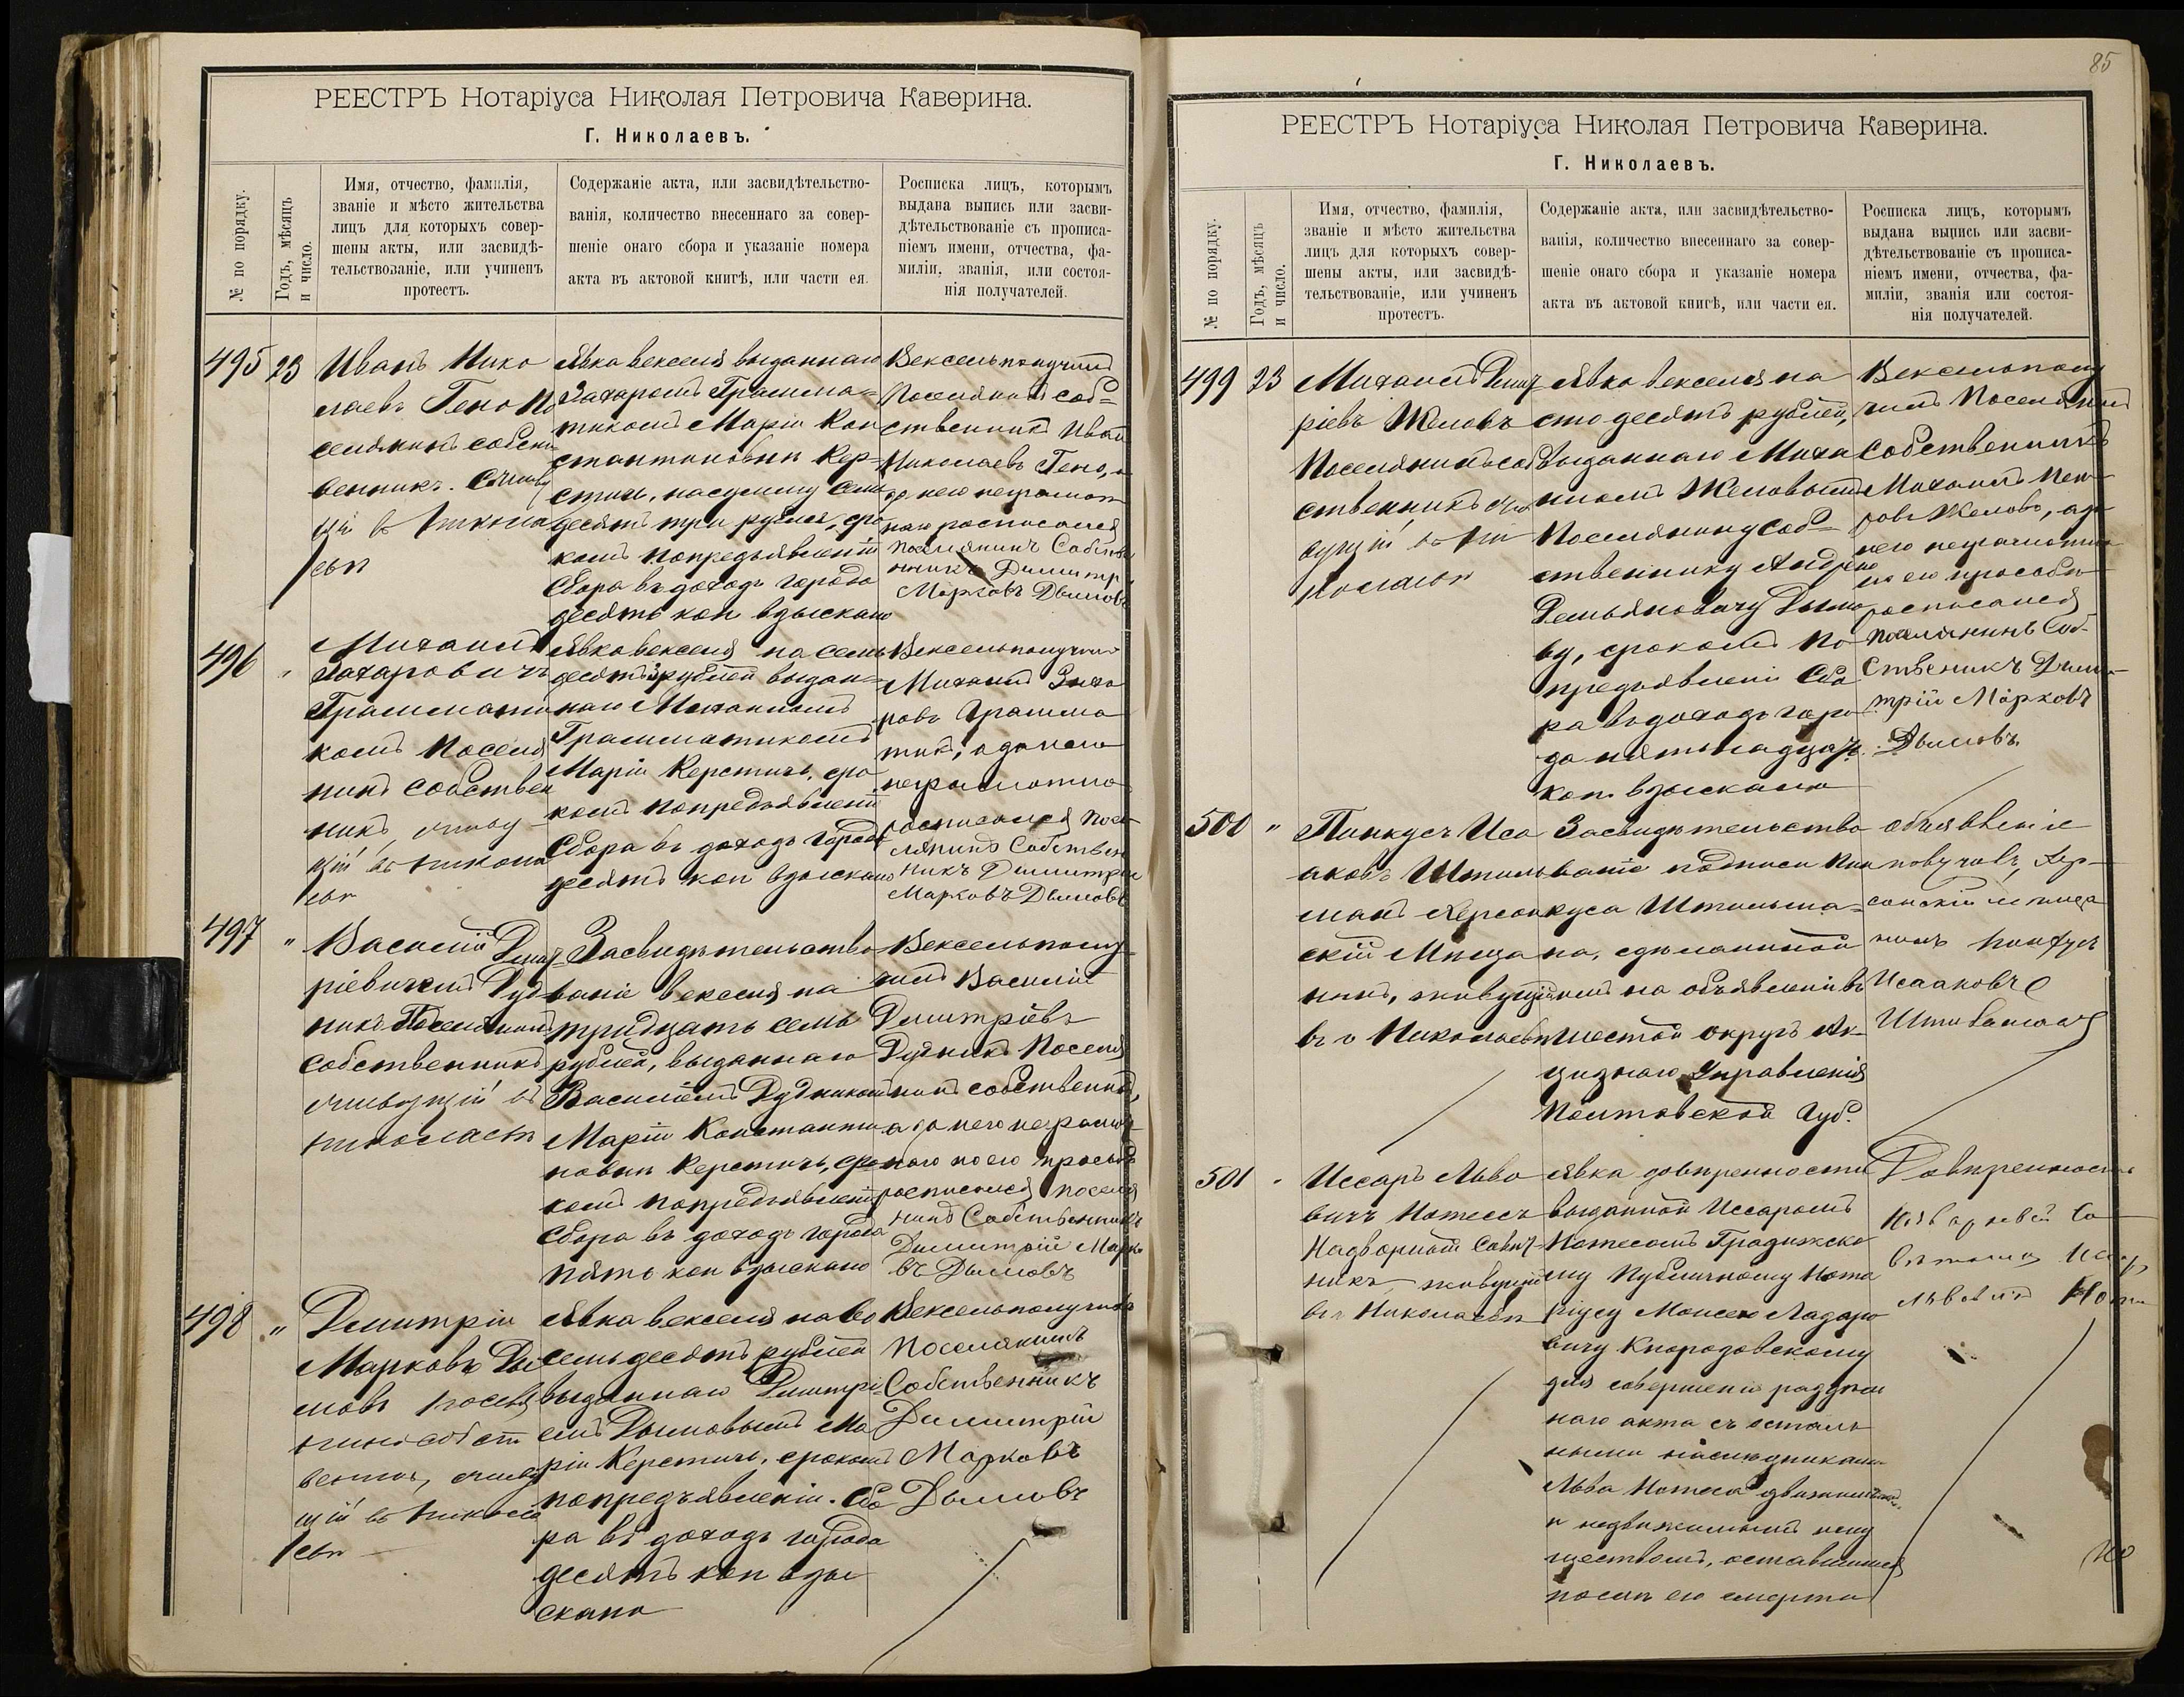 РЕЕСТРЪ Нотаріуса Николая Петровича Каверина.
Г. Николаевъ.
№ по порядку.
Годъ, мѣсяцъ
и число.
Имя, отчество, фамилія,
званіе и мѣсто жительства
лицъ для которыхъ совер-
шены акты, или засвидѣ-
тельствованіе, или учиненъ
протестъ.
Содержаніе акта, или засвидѣтельство-
ванія, количество внесеннаго за совер-
шеніе онаго сбора и указаніе номера
акта въ актовой книгѣ, или части ея.
Росписка лицъ, которымъ
выдана выпись или засви-
дѣтельствованіе съ прописа-
ніемъ имени, отчества, фа-
миліи, званія, или состоя-
нія получателей.
495
23
Иванъ Нико
лаевъ Гено По
селянинъ собств
венникъ.
Явка векселя выданнаго
Захаромъ Грамма=
тикомъ Маріи Кон
стантиновны Кер=
стичъ, на сумму семь
десятъ три рубля, сро
комъ по предъявленіи
Сбора въ доходъ города
десять коп взыскано
Вексель получилъ
Поселянинъ соб=
ственникъ Иван
Николаевъ Гено, а
за него неграмот
наго росписался
поселянинъ Собств
енникъ Димитр
Марковъ Дымовъ
496
Михаилъ
Захаровичъ
Граммати
комъ Поселя
нинъ собствен
никъ,
Явка векселя на семь
десятъ рублей выдан=
наго Михаиломъ
Грамматикомъ
Маріи Керстичъ, сро
комъ по предъявленіи
Сбора въ доходъ города
десять коп взыскано
Вексель получилъ
Михаилъ Заха
ровъ Грамма
тикъ, а за него
неграмотна
росписался посе
лянинъ Собствен
никъ Димитрій
Марковъ Дымовъ
497
"
Василій Дмит
ріевичемъ Дуд
никъ Поселянинъ
собственникъ
Засвидѣтельство
ваніе векселя на
тридцать семь
рублей, выданнаго
Василіемъ Дудникомъ
Маріи Константи
новны Керстичъ, сро
комъ по предъявленіи
Сбора въ доходъ города
пять коп взыскано
Вексель полу
чилъ Василій
Дмитріевъ
Дудникъ Поселя
нинъ собственникъ,
а за него неграмот
наго по его просьбѣ
росписался поселя
нинъ Собственникъ
Димитрій Марко
въ Дымовъ
498
"
Дмитріи
Марковъ Ды
мовъ поселя
нинъ собст
венникъ,
Явка векселя на во
семьдесятъ рублей
выданнаго Дмитрі
емъ Дымовымъ Ма
ріи Керстичъ, срокомъ
по предъявленіи. Сбо
ра въ доходъ города
десять коп взы
скано
Вексель получилъ
Поселянинъ
Собственникъ
Димитрій
Марковъ
Дымовъ
85
РЕЕСТРЪ Нотаріуса Николая Петровича Каверина.
Г. Николаевъ.
№ по порядку.
Годъ, мѣсяцъ
и число.
Имя, отчество, фамилія,
званіе и мѣсто жительства
лицъ для которыхъ совер-
шены акты, или засвидѣ-
тельствованіе, или учиненъ
протестъ.
Содержаніе акта, или засвидѣтельство-
ванія, количество внесеннаго за совер-
шеніе онаго сбора и указаніе номера
акта въ актовой книгѣ, или части ея.
Росписка лицъ, которымъ
выдана выпись или засви-
дѣтельствованіе съ прописа-
ніемъ имени, отчества, фа-
миліи, званія или состоя-
нія получателей.
499
23
Михаилъ Дмит
ріевъ Желовъ
Поселянинъ соб
ственникъ
Явка векселя на
сто десять рублей,
выданнаго Миха
иломъ Желовымъ
Поселянину соб=
ственнику Андрею
Демьяновичу Дымо
ву, срокомъ по
предъявленіи Сбо
ра въ доходъ горо
да пятнадцать
коп. взыскано
Вексель полу
чилъ Поселянинъ
Собственникъ
Михаилъ
Желовъ, а за
него неграмотна
по его просьбѣ
росписался
поселянинъ Соб-
ственикъ Дими-
трій Марковъ
Дымовъ.
500
"
Пинкусъ Иса
аковъ Штиль
манъ Херсон
скій Мѣща
нинъ, живущій
въ г Николаевѣ
Засвидѣтельство
ваніе подписи Пин
куса Штильма=
на, сдѣланной
имъ на объявленіи въ
шестой округъ Ак-
цизнаго Управленія
Полтавской Губ.
объявленіе
получилъ, Хер-
сонскій мѣща
нинъ Пинкусъ
Исааковъ
501
Иссаръ Льво
вичъ Нотесъ
Надворный Совѣт
никъ живущій
въ Николаевѣ
Явка довѣренности
выданной Иссаромъ
Нотесомъ Градижско
му Публичному Нота
ріусу Моисею Лазаро
вичу Кнорозовскому
для совершенія раздѣль
наго акта съ осталь
ными наслѣдниками
Льва Нотеса движимымъ
и недвижимымъ иму
ществомъ, оставшимся
послѣ его смерти
Довѣренность